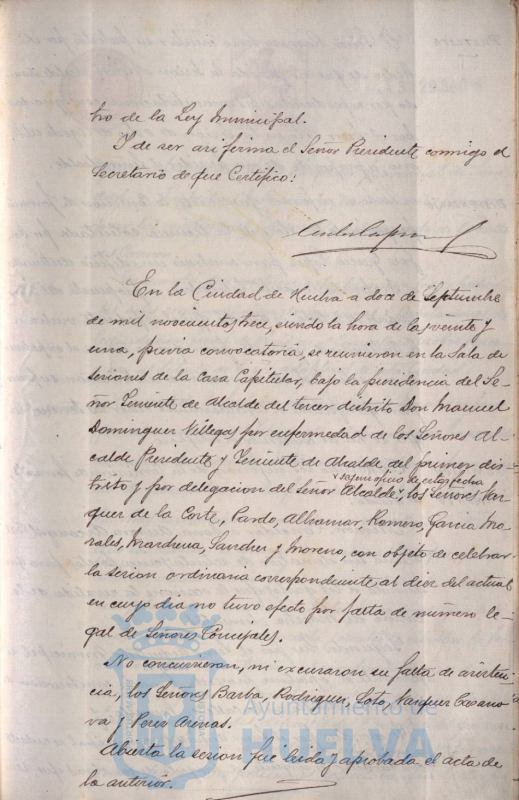 tro de la Ley Municipal.
Y de ser asi firma el Señor Presidente conmigo el
Secretario de que Certifico:
En la Ciudad de Huelva a doce de Septiembre
de mil novecientos trece, siendo la hora de las veinte y
una, previa convocatoria, se reunieron en la Sala de
sesiones de la Casa Capitular, bajo la presidencia del Se-
ñor Teniente de Alcalde del tercer distrito Don Manuel
Dominguez Villegas por enfermedad de los Señores Al-
calde Presidente y Teniente de Alcalde del primer dis-
oficio de esta fecha
trito y por delegacion del Señor Alcalde, los Señores Vaz-
quez de la Corte, Pardo, Albramar, Romero, Garcia Mo-
rales, Marchena, Sanchez y Moreno, con objeto de celebrar
la sesion ordinaria correspondiente al diez del actual
en cuyo dia no tuvo efecto por falta de número le-
gal de Señores Concejales.
No concurrieron, ni excusaron su falta de asisten-
cia, los Señores Barba, Rodriguez, Soto, Vazquez Casano-
va y Perez Arinas.
Abierta la sesion fué leida y aprobada el acta de
la anterior.
Ayuntamiento de
HUELVA